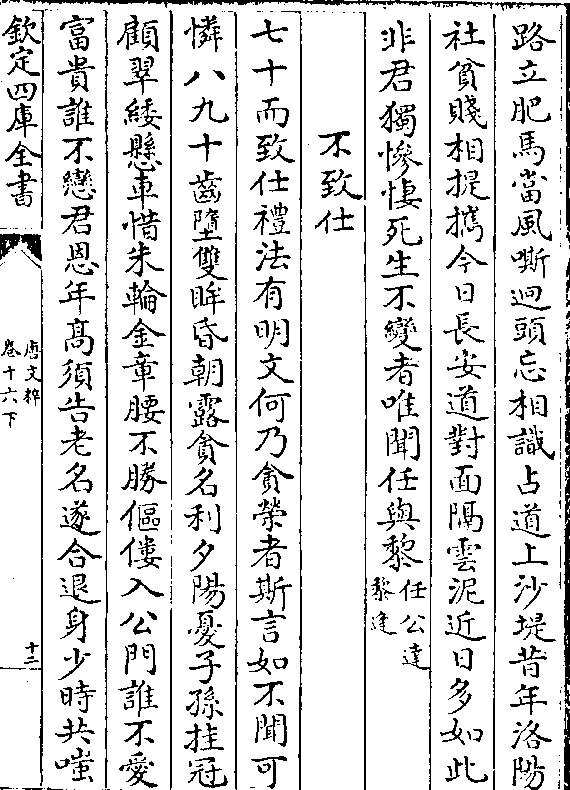 路立肥馬當風嘶迴頭忘相識占道上沙堤昔年洛陽
社貧賤相提攜今日長安道對面隔雲泥近日多如此
非君獨慘悽死生不變者唯聞任與黎任公達黎逢
不致仕
七十而致仕禮法有明文何乃貪榮者斯言如不聞可
憐八九十齒墮雙眸昏朝露貪名利夕陽憂子孫挂冠
顧翠緌懸車惜朱輪金章腰不勝傴僂入公門誰不愛
富貴誰不戀君恩年高須告老名遂合退身少時共嗤
欽定四庫全書
唐文粹
卷十六下
十三